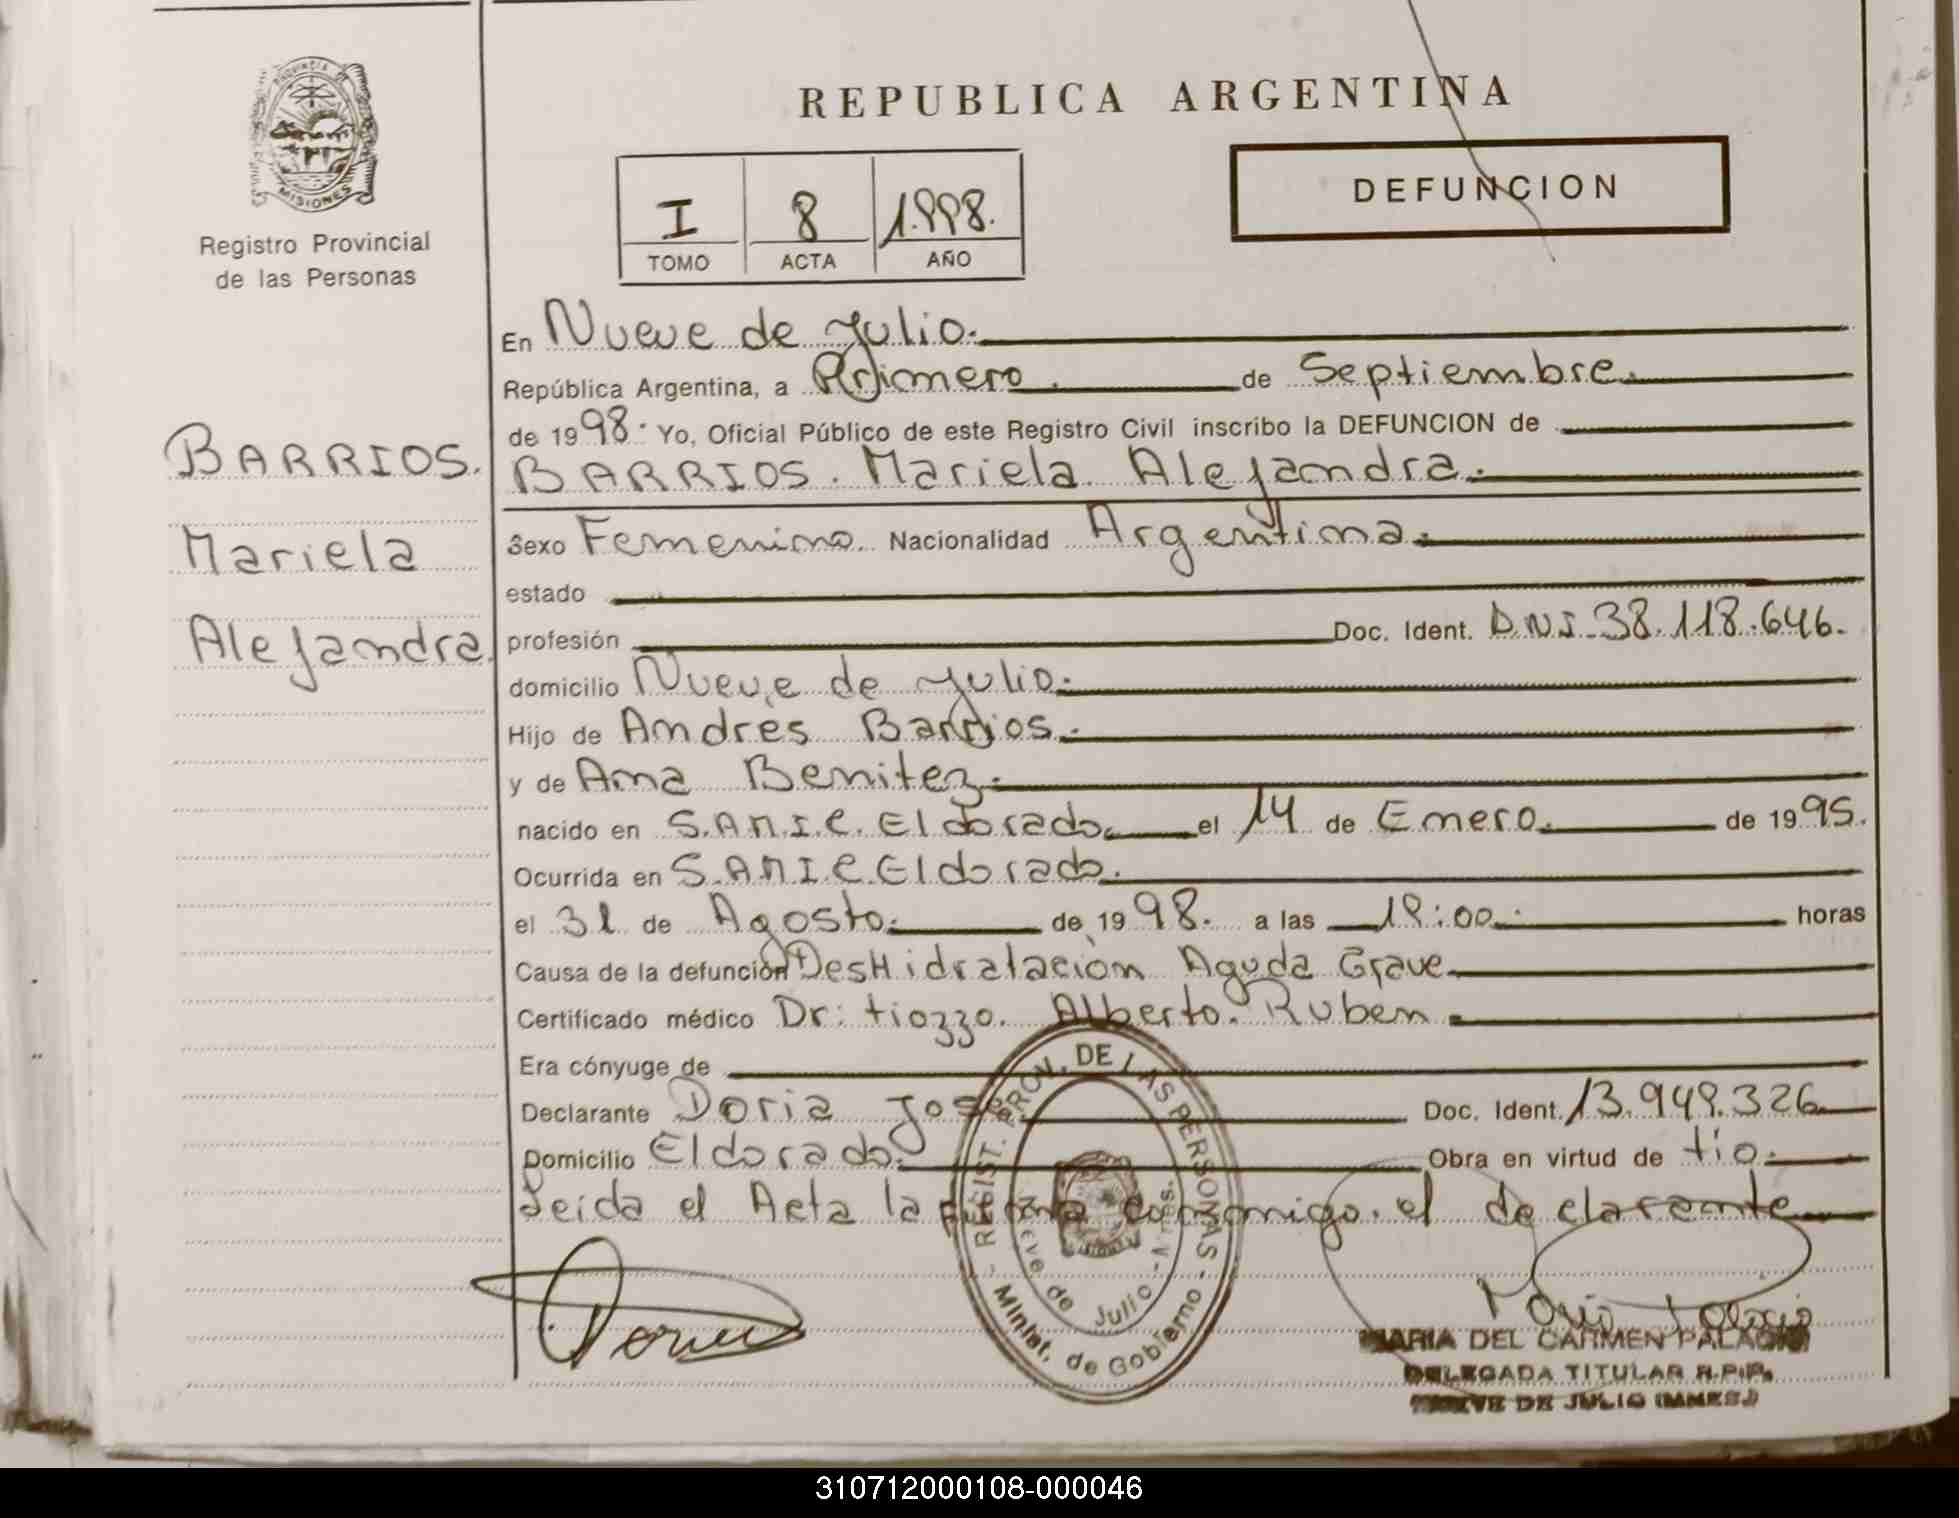 PROVINCIA DE
MISIONES
Registro Provincial
de las Personas
BARRIOS.
Mariela
Alejandra.
REPUBLICA ARGENTINA
I 8 1.998.
TOMO ACTA AÑO
DEFUNCION
En Nueve de Julio.
República Argentina, a Primero. de Septiembre.
de 1998. Yo, Oficial Público de este Registro Civil inscribo la DEFUNCION de
BARRIOS. Mariela Alejandra.
Sexo Femenino. Nacionalidad Argentina.
estado
profesión Doc. Ident. D.N.I. 38.118.646.
domicilio Nueve de Julio.
Hijo de Andres Barrios.
y de Ana Benitez.
nacido en S.A.M.I.C. Eldorado. el 14 de Enero. de 1995.
Ocurrida en S.A.M.I.C. Eldorado.
el 31 de Agosto. de 1998. a las 18:00. horas
Causa de la defunción DesHidratación Aguda Grave.
Certificado médico Dr: tiozzo. Alberto. Ruben.
Era cónyuge de
Declarante Doria Jose. Doc. Ident. 13.949.326
Domicilio Eldorado. Obra en virtud de tio.
Leida el Acta la firma conmigo. el declarante
REGIST. PROV. DE LAS PERSONAS
Nueve de Julio - Mnes.
Minist. de Gobierno
MARIA DEL CARMEN PALACIO
DELEGADA TITULAR R.P.P.
NUEVE DE JULIO (MNES.)
310712000108-000046